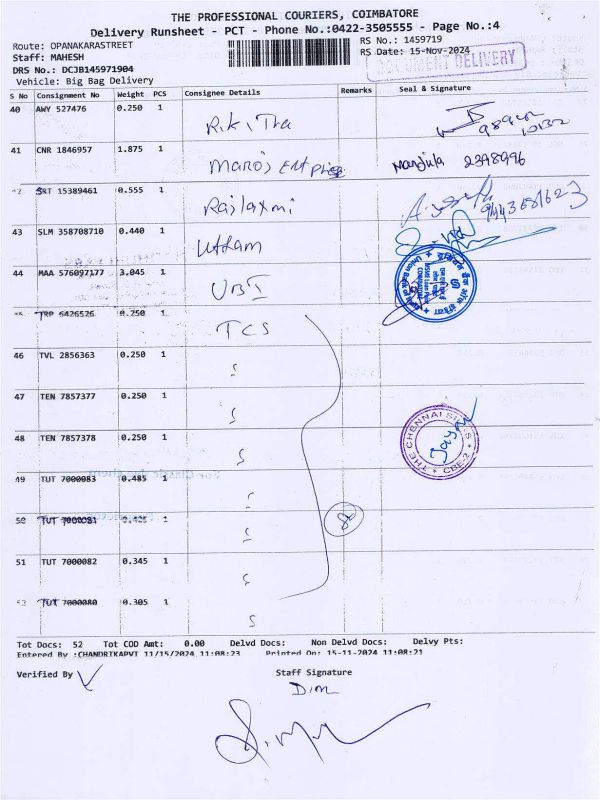 THE PROFESSIONAL COURIERS, COIMBATORE
Delivery Runsheet - PCT - Phone No.:0422-3505555 - Page No.:4
Route: OPANAKARASTREET RS No.: 1459719
Staff: MAHESH RS Date: 15-Nov-2024
DOCUMENT DELIVERY
DRS No.: DCJB145971904
Vehicle: Big Bag Delivery
S No Consignment No Weight PCS Consignee Details Remarks Seal & Signature
40 AWY 527476 0.250 1
Rikitha
41 CNR 1846957 1.875 1
Manjula 2398996
42 SRT 15389461 0.555 1
Rajlaxmi
43 SLM 358708710 0.440 1
Uttam
44 MAA 576097177 3.045 1
UBI
45 TRP 6426526 0.250 1
TCS
46 TVL 2856363 0.250 1
47 TEN 7857377 0.250 1
THE CHENNAI SILKS
Jayan
CBE-2
48 TEN 7857378 0.250 1
49 TUT 7000083 0.485 1
50 TUT 7000081 1
51 TUT 7000082 0.345 1
TUT 7000080 0.305 1
Tot Docs: 52 Tot COD Amt: 0.00 Delvd Docs: Non Delvd Docs: Delvy Pts:
Entered By :CHANDRIKAPVT 11/15/2024 11:08:23 Printed On: 15-11-2024 11:08:21
Verified By Staff Signature